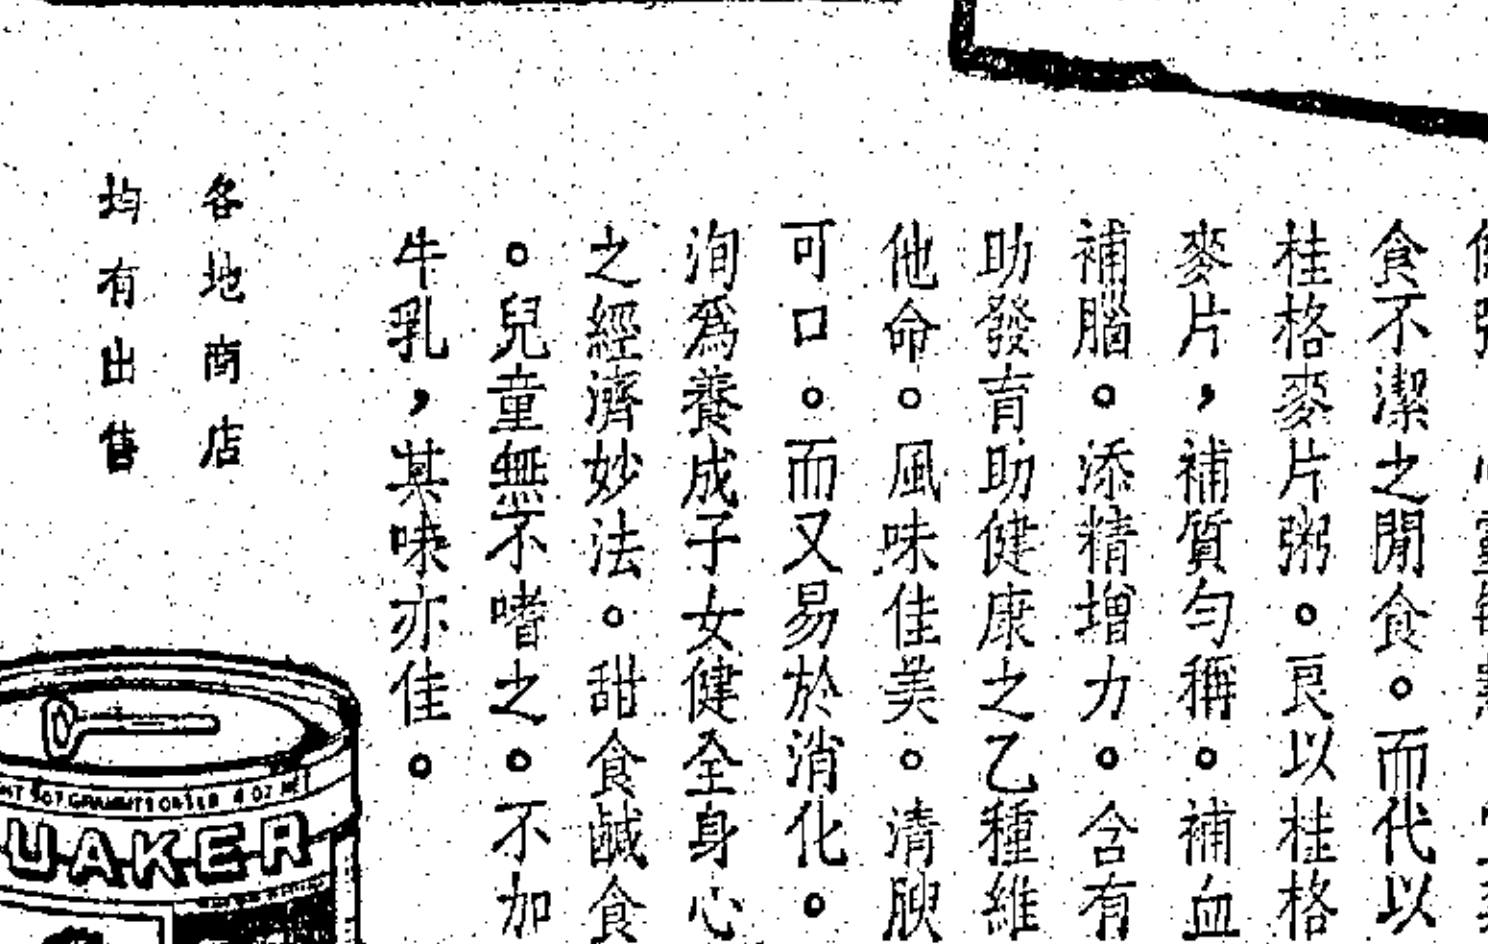 食不潔之閒食。而代以
桂格麥片粥。良以桂格
麥片，補質勻稱。補血
補腦。添精增力。含有
助發育助健康之乙種維
他命。風味佳美。清腴
可口。而又易於消化。
洵爲養成子女健全身心
之經濟妙法。甜食鹹食
。兒童無不嗜之。不加
牛乳，其味亦佳。
各地商店
均有出售
4 OZ
UAKER